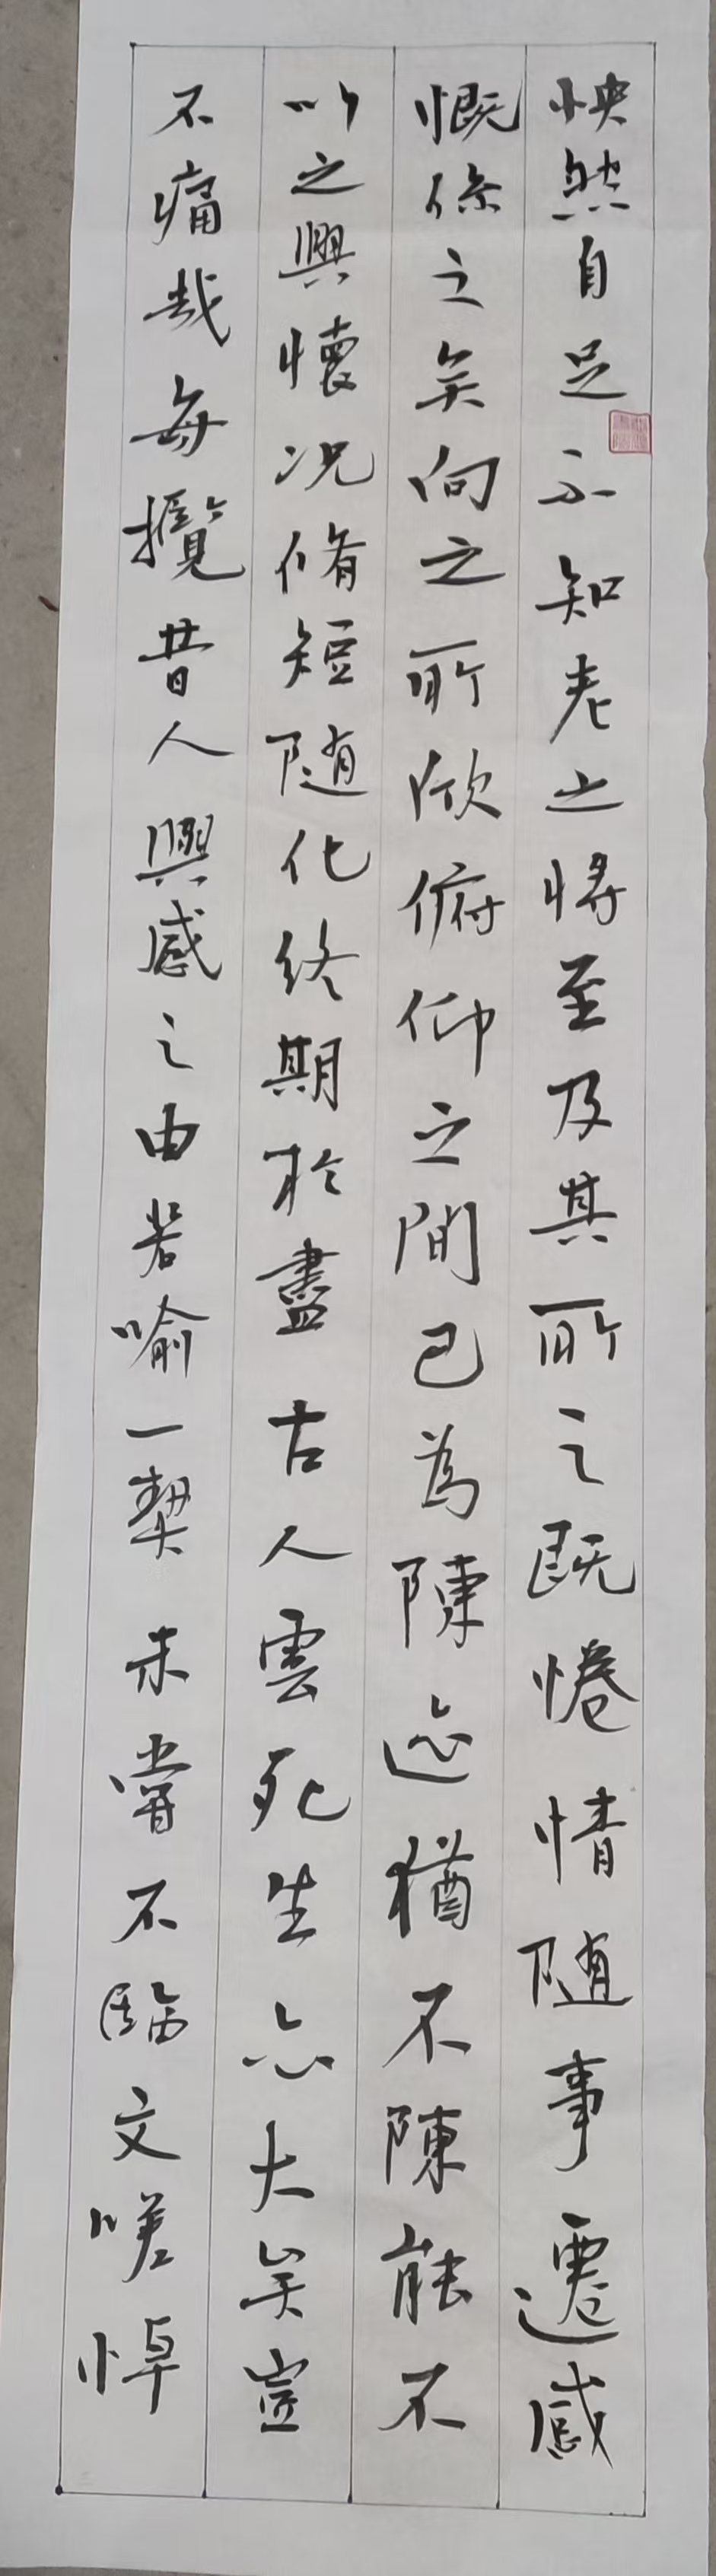 怏然自足不知老之将至及其所之既惓情随事遷感
慨係之矣向之所欣俯仰之間已為陳迹猶不陳能不
以之興懷况脩短随化終期於盡古人雲死生亦大矣豈
不痛哉每攬昔人興感之由若喻一契未嘗不臨文嗟悼